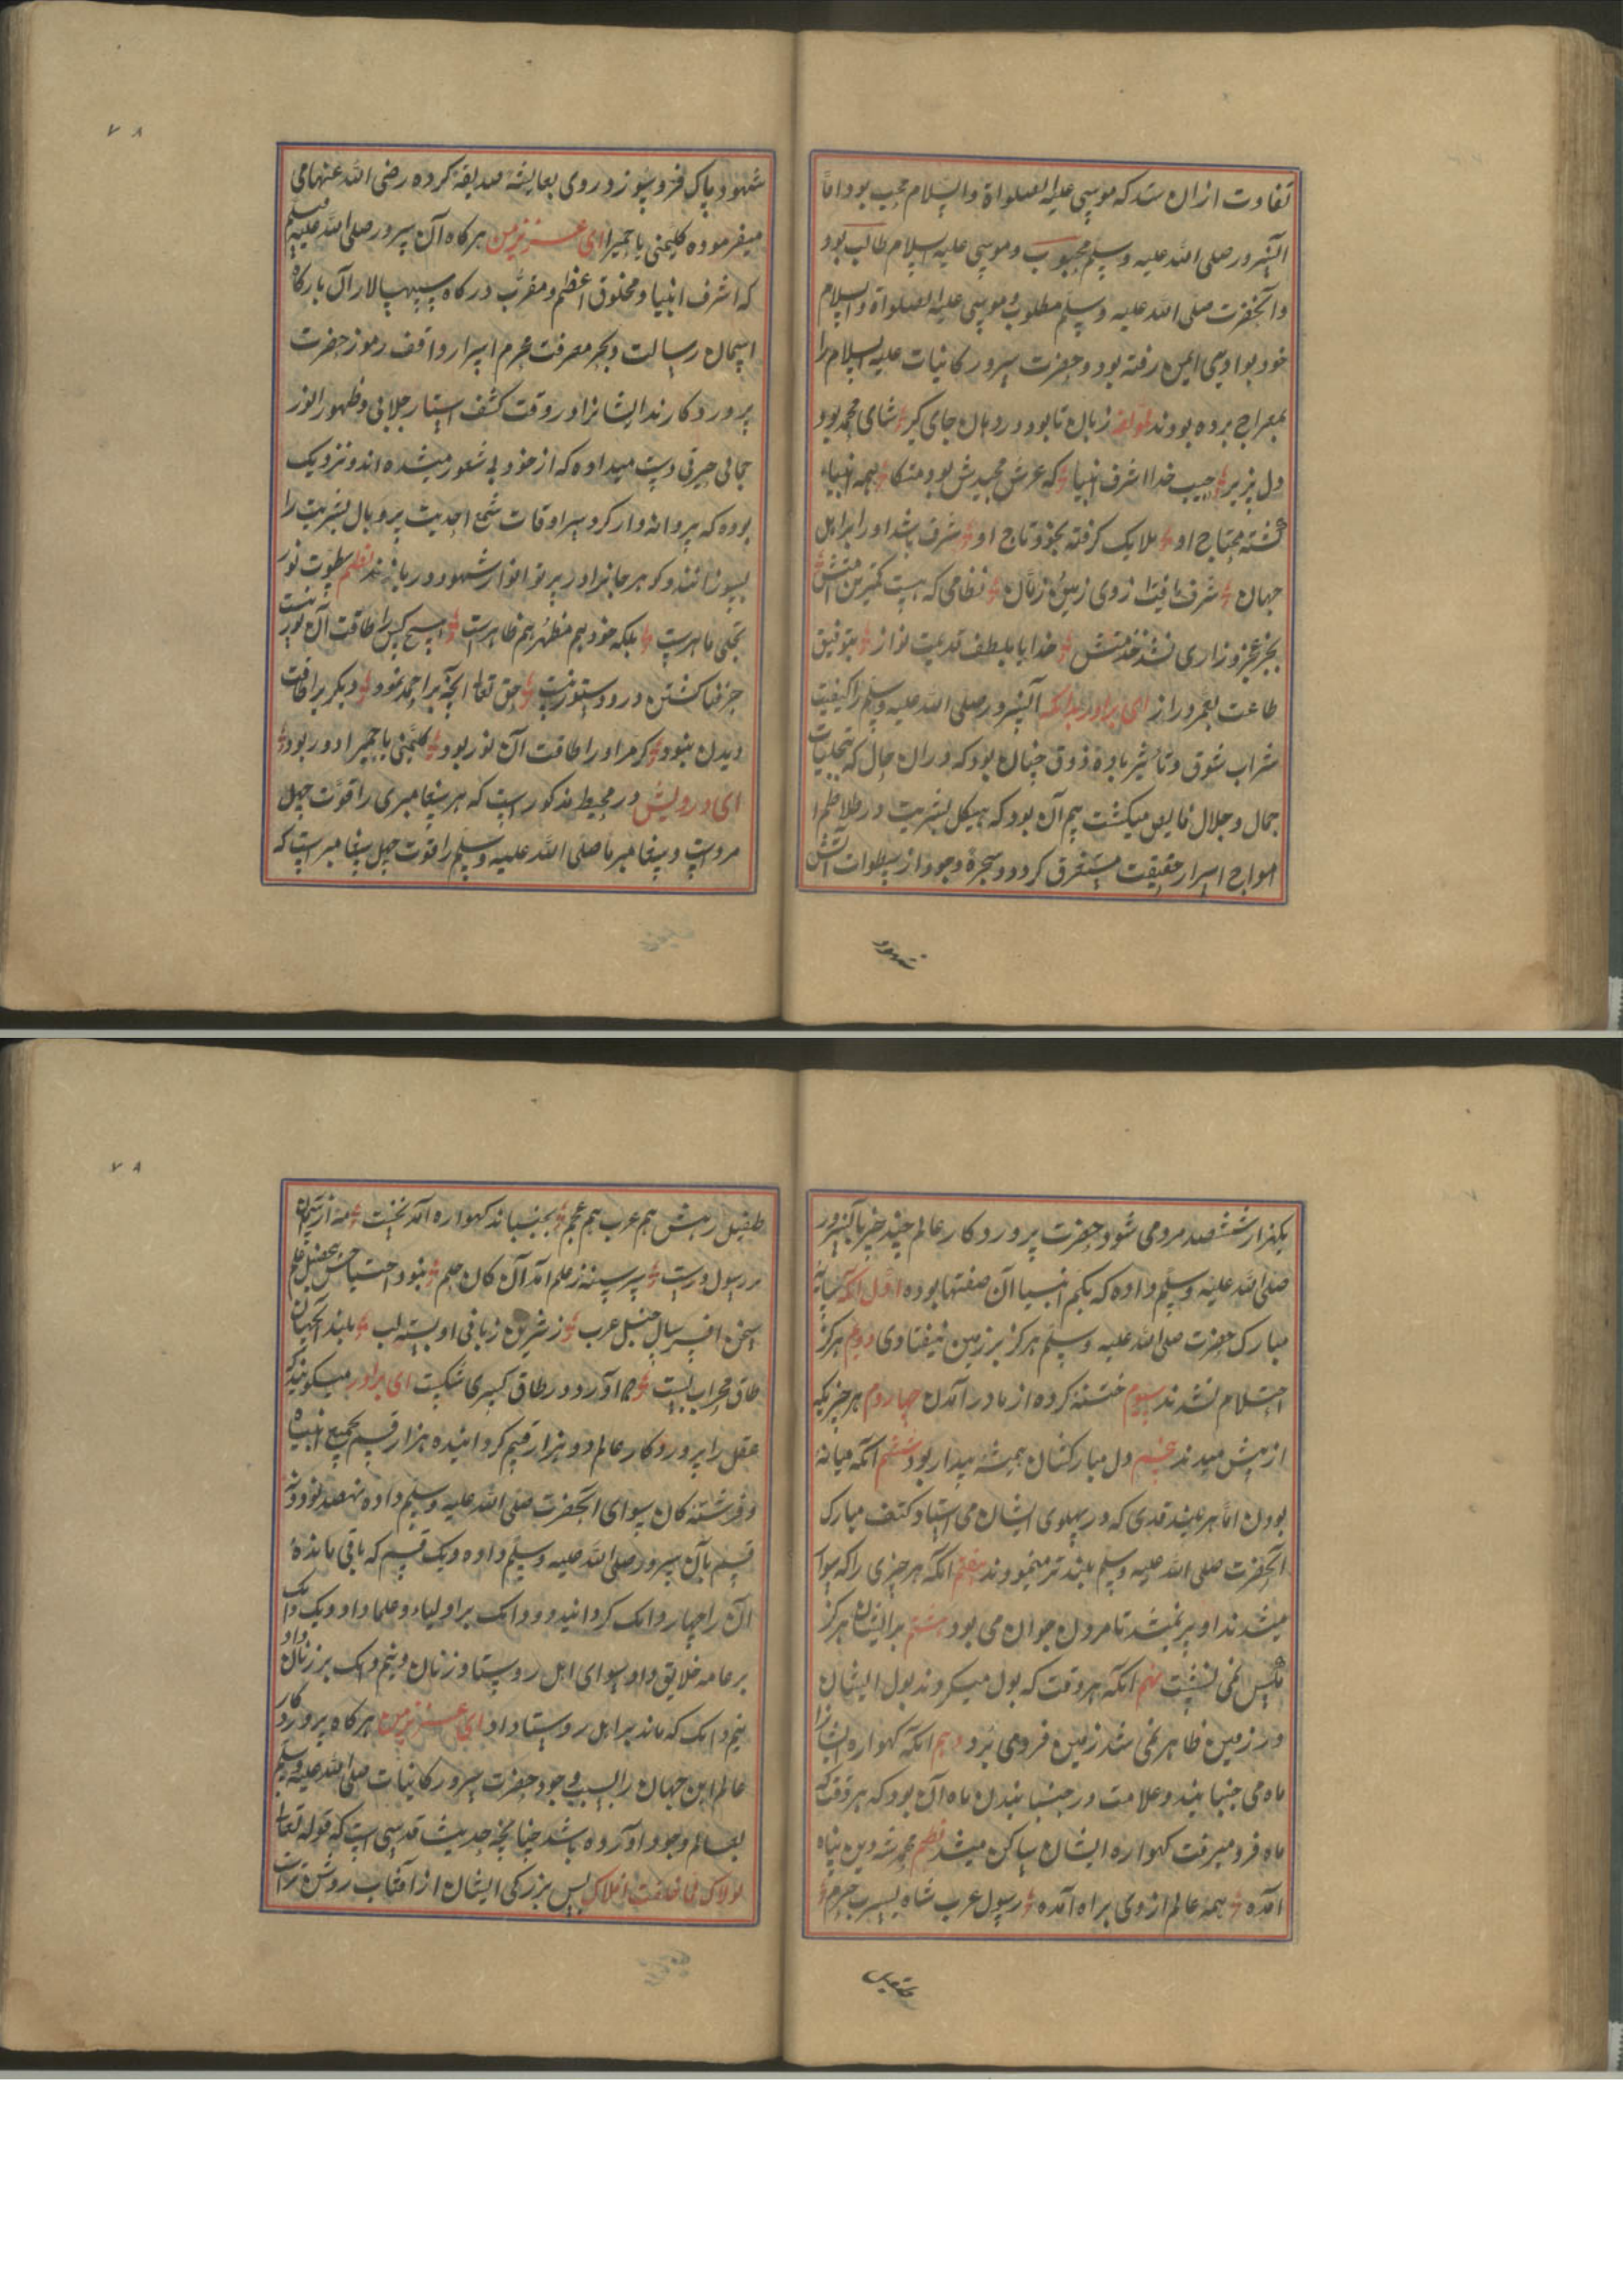 تفاوت ازان شد که موسی علیه الصلواة والسلام محب بود اما
آلنسرور صلی الله علیه وسلم محبوب و موسی علیه السلام طالب بود
و آنحضرت صلی الله علیه وسلم مطلوب و موسی علیه الصلواة والسلام
خود بوادی ایمن رفته بود و حضرت سرور کاینات علیه السلام را
بمعراج برده بودند لمولفه زبان تا بود در دهان جای گیر ثنای محمد بود
دل پزیر حبیب خدا اشرف انبیا که عرش مجیدش بود متکا همه انبیاء
گشته محتاج او ملایک گرفته بخود تاج او شرف باشد او را بر اهل
جهان شرف یافت از وی زمین و زمان نظامی که هست کمترین امتش
بجز عجز و زاری نشد خدمتش خدایا بلطف قدیمت نواز بتوفیق
طاعت بعمر دراز ای برادر بدانکه آنسرور صلی الله علیه وسلم را کیفیت
شراب شوق و تأثیر باده ذوق چنان بود که دران حال که تجلیات
جمال و جلال فایض میگشت بیم آن بود که هیکل بشریت در طلاطم
امواج اسرار حقیقت مستغرق کردد و شجره وجود از سطوات آتش
شهود
۷۸
شهود پاک فرو سوزد روی بعایشه صدیقه کرده رضی الله عنها می
میفرموده کلیمنی یا حمیرا ای عزیز من هرکاه آن سرور صلی الله علیه وسلم
که اشرف انبیا و مخلوق اعظم و مقرب درکاه سپهسالار آن بارکاه
آسمان رسالت و بحر معرفت محرم اسرار واقف رموز حضرت
پروردکارند ایشانرا در وقت کشف استار جلالی و ظهور انوار
جمالی حیرتی دست میداده که از خود بی شعور میشده اند و نزدیک
بوده که پروانه وار کرد سراوقات شمع احدیت پر و بال بشریت را
بسوزانند و کوهر جانرا در پرتو انوار شهود در بازند نظم سطوت نور
تجلی ماهرست بلکه خود هم مظهر هم ظاهرست هیچ کس را طاقت آن نور نیست
جز فنا کشتن درو دستور نیست حق تعالی آنچه بر احمد نمود دیکر برا طاقت
دیدن نبود کرمر او را طاقت آن نور بود کلیمنی یا حمیرا دور بود
ای درویش در محیط مذکور است که هر پیغامبری را قوت چهل
مردست و پیغامبر ما صلی الله علیه وسلم را قوت چهل پیغامبر است که
یکهزار ششصد مرد می شود حضرت پروردکار عالم چند چیز بآنسرور
صلی الله علیه وسلم داده که بکم انبیا آن صفتها بوده اول آنکه سایه
مبارک حضرت صلی الله علیه وسلم هرکز بر زمین نیفتادی دوم هرکز
احتلام نشدند سیوم ختنه کرده از مادر آمدن چهاردم هر چیزیکه
از پیش میدند پنجم دل مبارکشان همیشه بیدار بود ششم آنکه میانه
بودن اما هر بلند قدی که در پهلوی ایشان می استاد کتف مبارک
آنحضرت صلی الله علیه وسلم بلندتر مینمودند هفتم آنکه هر چیزی را که سوار
میشدند او پیر نمیشد تا مردن جوان می بود هشتم بر ایشان هرکز
مکس نمی نشست نهم آنکه هر وقت که بول میکردند بول ایشان
در زمین ظاهر نمی شد زمین فرو می برد دهم آنکه کهواره ایشانرا
ماه می جنبانید و علامت در جنبانیدن ماه آن بود که هر وقت که
ماه فرو میرفت کهواره ایشان ساکن میشد نظم محمد شه دین پناه
آمده همه عالم از وی براه آمده رسول عرب شاه یثرب حرم
طفیل
۷۸
طفیل رهش هم عرب هم عجم بجنباند کهواره آمد نخست مه از آسمان
بر رسول درست پر سینه ز علم آمد آن کان حلم نبود احتیاجش بتحصیل علم
سخن افسر سال خیل عرب ز شیرین زبانی او بسته لب بلند آنچنان
طاق محراب بست که آورد در طاق کسری شکست ای برادر میکویند که
عقل را پروردکار عالم دو هزار قسم کردانیده هزار قسم بجمیع انبیاء
و فرشته کان سوای آنحضرت صلی الله علیه وسلم داده نهصد نود و نه
قسم بآن سرور صلی الله علیه وسلم داده و یک قسم که باقی مانده
آن را چهار دانک کردانید و دو دانک بر اولیاء و علما داد و یک دانک
بر عامه خلایق داد سوای اهل روستا و زنان و نیم دانک بر زنان داد
نیم دانک که ماند بر اهل روستا داد ای عزیز من هر کاه پروردکار
عالم این جهان را بسبب وجود حضرت سرور کاینات صلی الله علیه وسلم
بعالم وجود آورده باشد چنانچه حدیث قدسی است که قوله تعالی
لولاک لما خلقت افلاک پس بزرکی ایشان از آفتاب روشن تر است